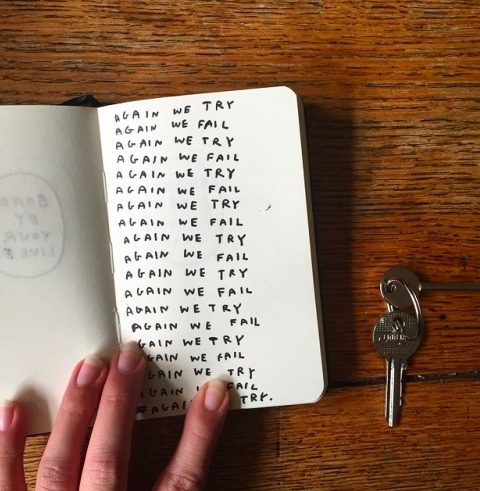 AGAIN WE TRY
AGAIN WE FAIL
AGAIN WE TRY
AGAIN WE FAIL
AGAIN WE TRY
AGAIN WE FAIL
AGAIN WE TRY
AGAIN WE FAIL
AGAIN WE TRY
AGAIN WE FAIL
AGAIN WE TRY
AGAIN WE FAIL
AGAIN WE TRY
AGAIN WE FAIL
AGAIN WE TRY
AGAIN WE FAIL
AGAIN WE TRY
AGAIN FAIL
AGAIN TRY.